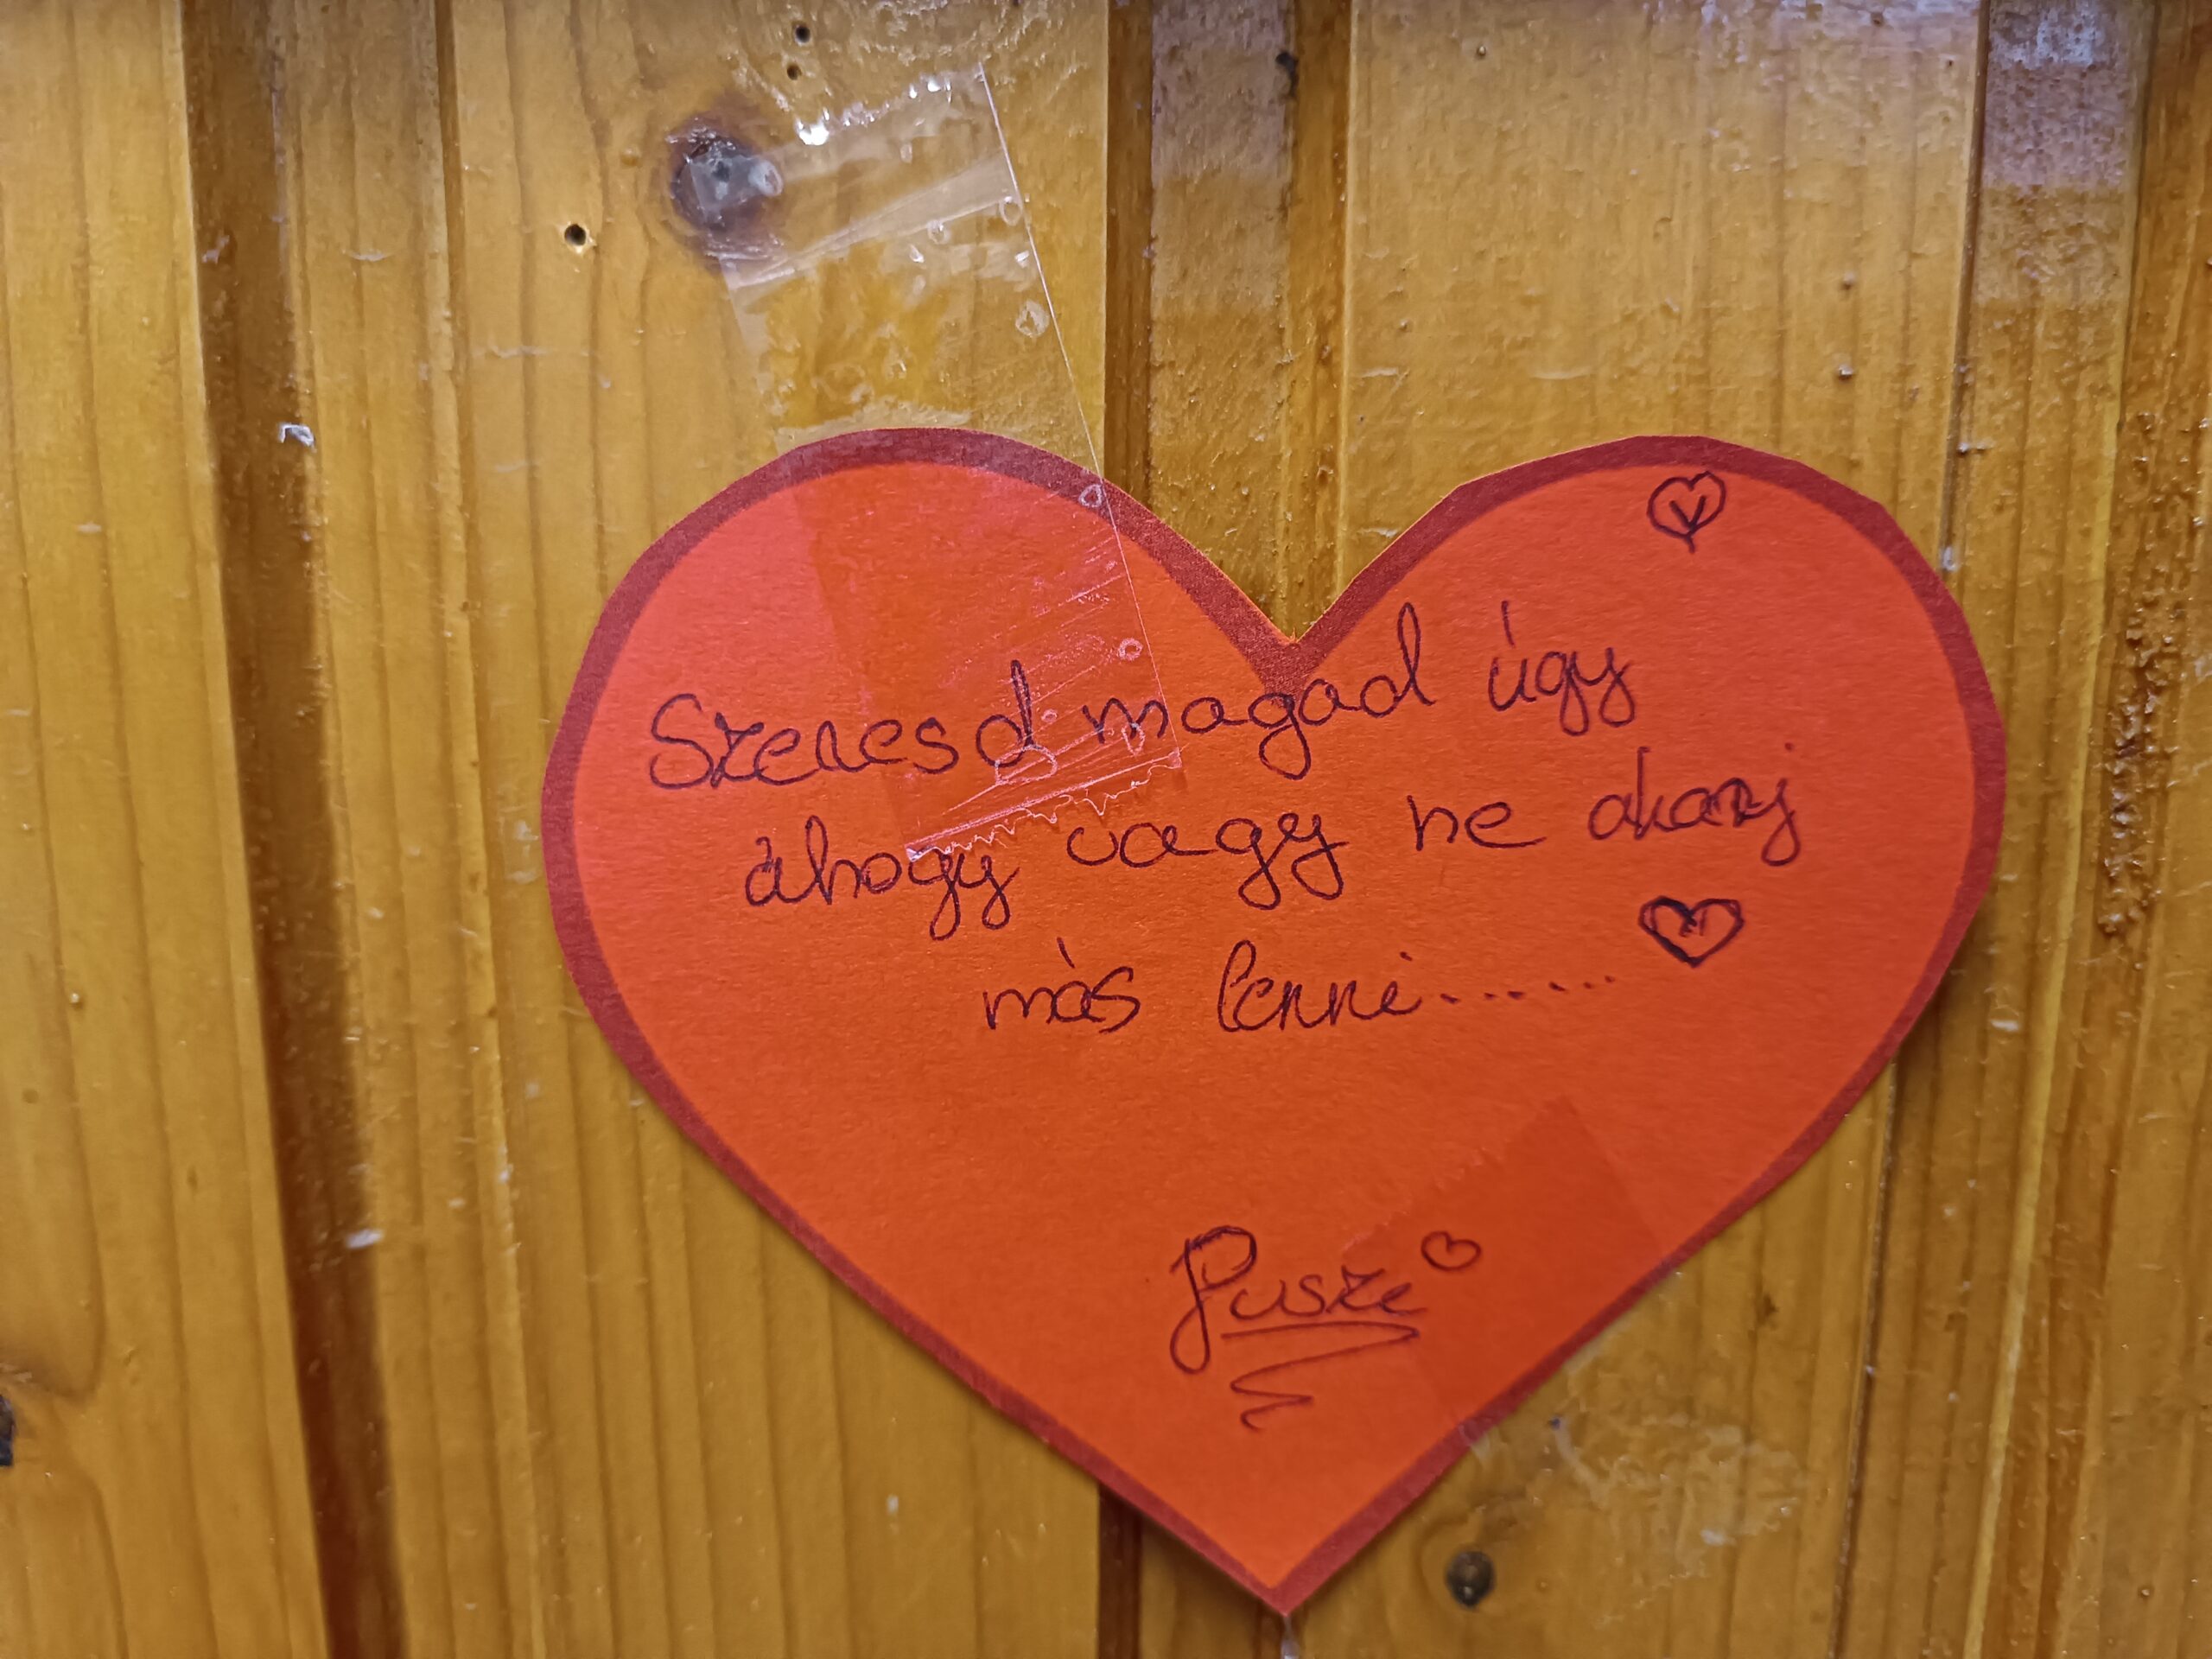 Szeresd magad úgy
ahogy vagy ne akarj
más lenni.......
Puszi